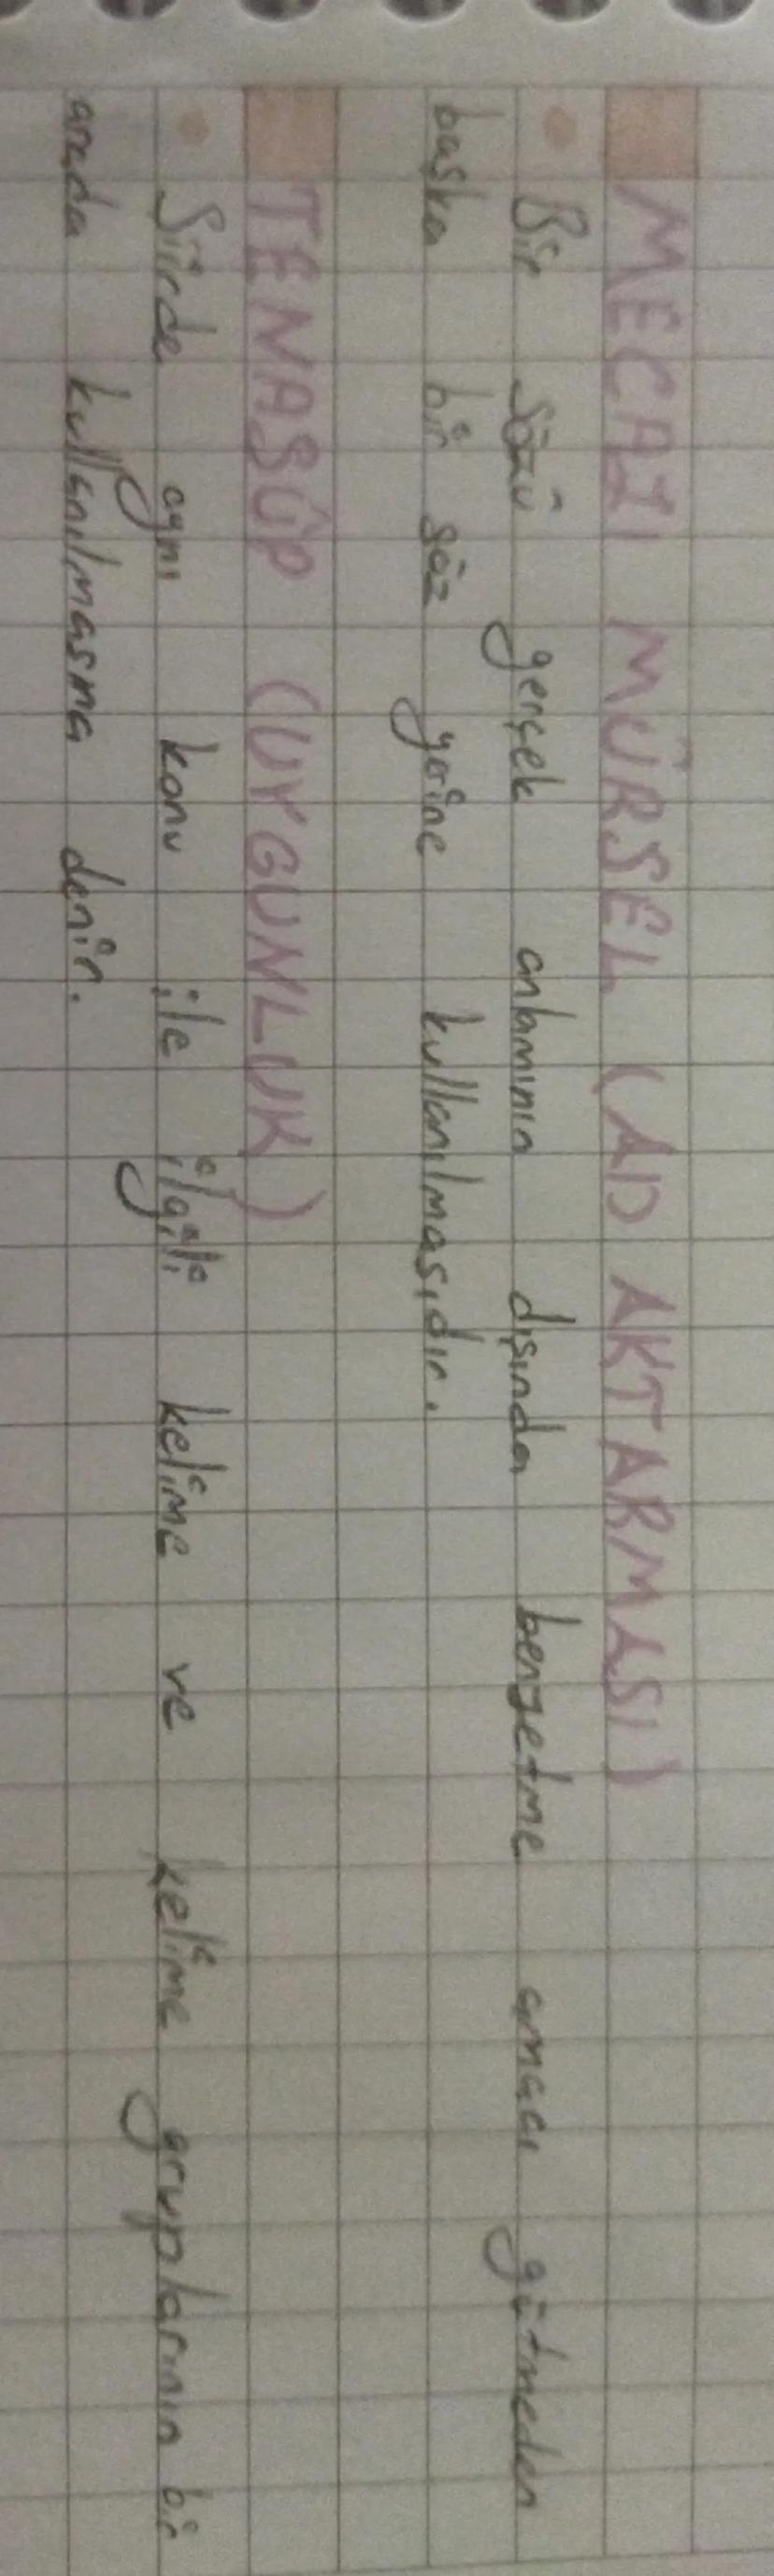 MECAZI MÜRSEL (AD AKTARMASI)
Bir sözü gerçek anlamının dışında benzetme amacı gütmeden
başka bir söz yerine kullanılmasıdır.
TENASÜP (UYGUNLUK)
Şiirde aynı konu ile ilgili kelime ve kelime gruplarının bir
arada kullanılmasına denir.